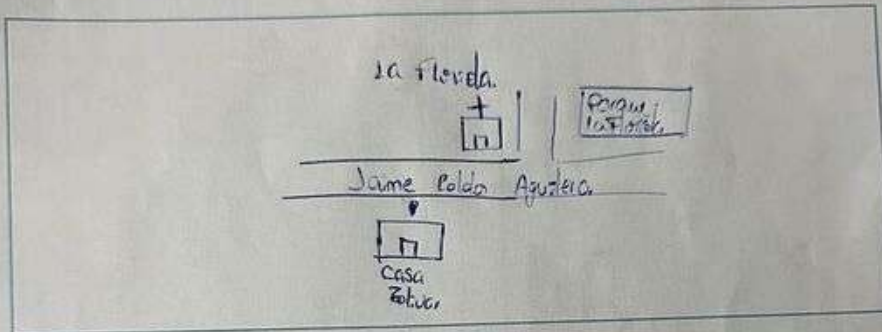 La Florida.
Parque
la Florida
Jaime Roldos Aguilera
Casa